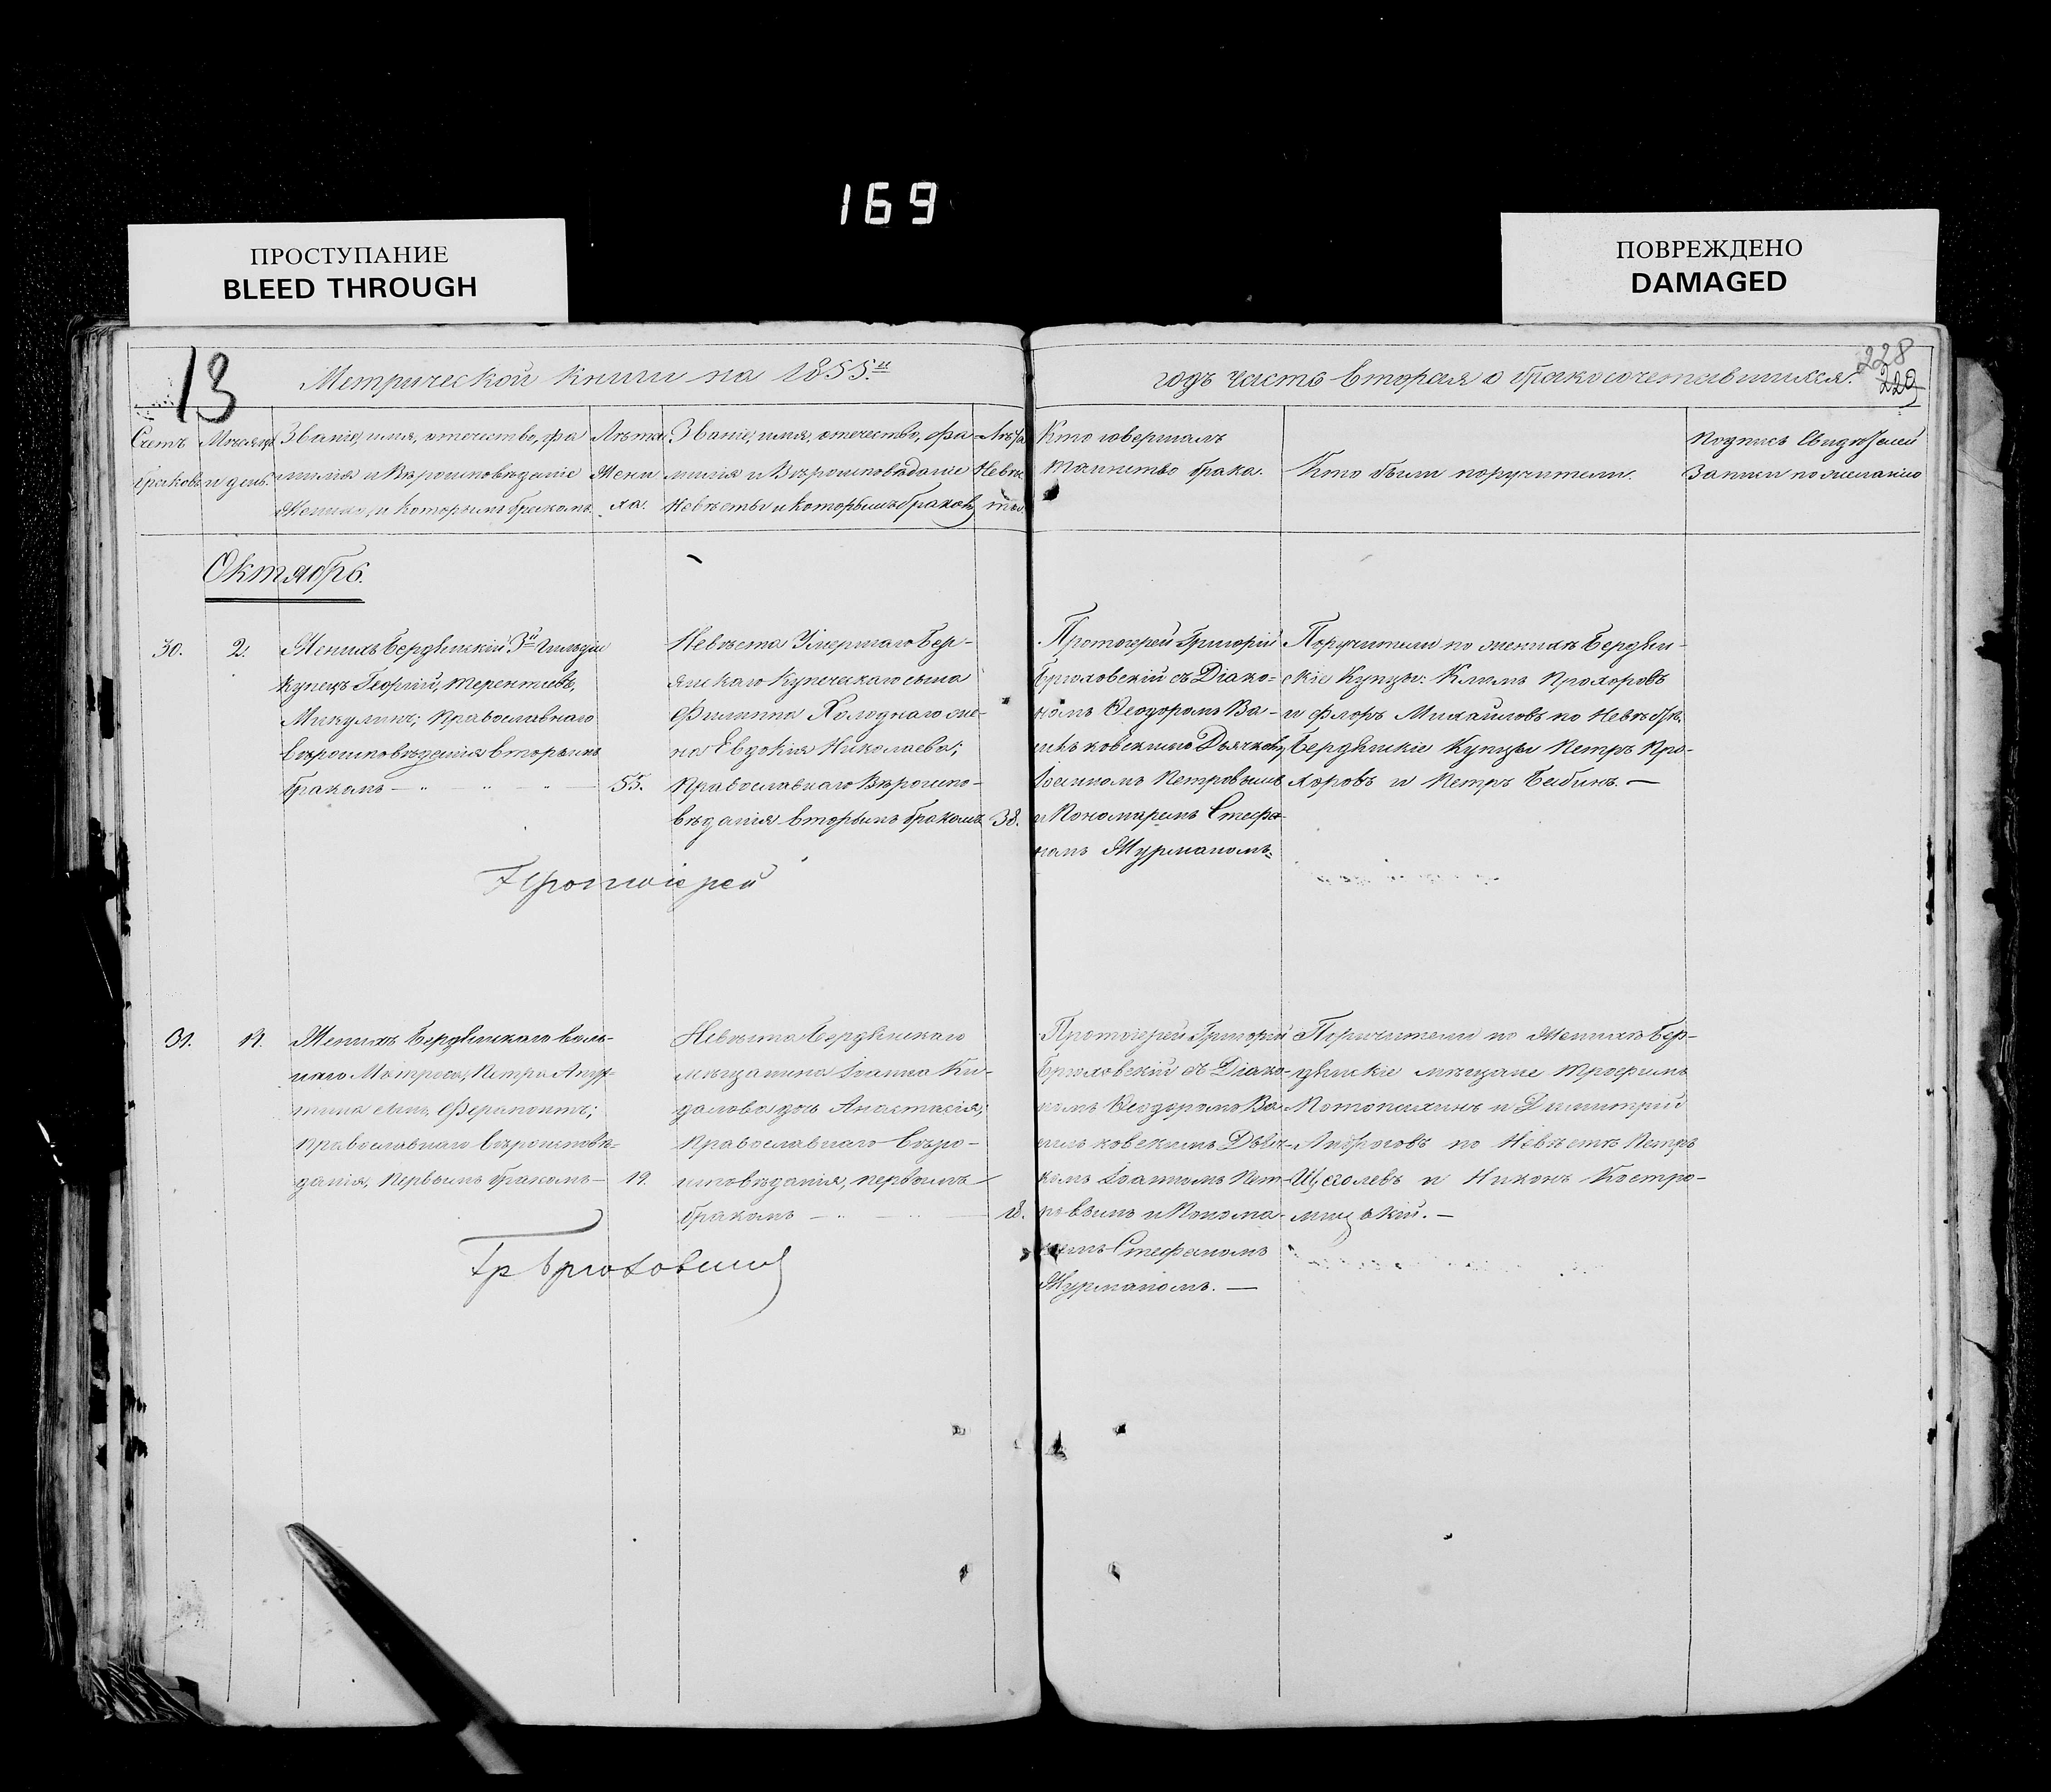 169
ПРОСТУПАНИЕ
BLEED THROUGH
ПОВРЕЖДЕНО
DAMAGED
13
Метрической книги на 1855.й
годъ часть вторая о бракосочетавшихся.
228
229
Счетъ
браковъ
Мѣсяцъ
и день.
Званіе, имя, отечество, фа
милія и Вѣроисповѣданіе
Жениха, и которымъ бракомъ.
Лѣта
Жени
ха.
Званіе, имя, отечество, фа-
милія и Вѣроисповѣданіе
Невѣсты и которымъ бракомъ
Лѣта
Невѣс
ты.
Кто совершалъ
таинство брака.
Кто были поручители.
Подпись Свидѣтелей
Записи по желанію
Октябрь.
30.
2.
Женихъ Бердянскій 3й гильдіи
Купецъ Георгій, Терентіевъ,
Микулинъ; Православнаго
Вѣроисповѣданія вторымъ
бракомъ —
55.
Невѣста Умершаго Бер-
янскаго Купеческаго сына
Филиппа Холоднаго же-
на Евдокія Николаева;
Православнаго Вѣроиспо-
вѣданія вторымъ бракомъ
38.
Протоіерей Григорій
Брюховскій съ Діако-
номъ Ѳеодоромъ Ва-
ковскимъ Дьячкомъ
Іоанномъ Петровымъ
и Пономаремъ Стефа-
номъ Журманомъ.
Поручители по женихѣ Бердян-
скіе Купцы: Климъ Прохоровъ
и Флоръ Михайловъ по Невѣстѣ
Бердянскіе Купцы Петръ Про-
хоровъ и Петръ Бабинъ. —
Протоіерей
31.
11.
Женихъ Бердянскаго воль-
наго Матроса, Петра
сынъ Ферапонтъ;
Православнаго Вѣроисповѣ-
данія, Первымъ бракомъ —
19.
Невѣста Бердянскаго
мѣщанина Іоанна Ки-
далова дочь Анастасія;
Православнаго Вѣро-
исповѣданія, первымъ
бракомъ —
18.
Протоіерей Григорій
Брюховскій съ Діако-
номъ Ѳеодоромъ Ва-
ковскимъ Дьяч-
комъ Іоанномъ Пет-
ровымъ и Понома-
ремъ Стефаномъ
Журманомъ. —
Поручители по Женихѣ Бер-
дянскіе мѣщане Трофимъ
и Димитрій
по Невѣстѣ Петръ
Щеголевъ и Никонъ Костро-
мицкій. —
Гр Брюховскій